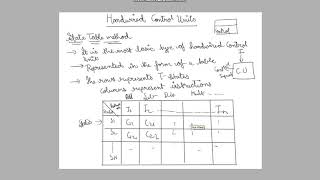 Hardwired Control Units
State Table method
→ It is the most basic type of hardwired Control
units
→ Represented in the form of a table
→ The rows represents T-States
columns represent instructions
Add Sub Div Mult
I1 I2 In
S1 C11 C12
S2 C21 C22
Sn
I
CU